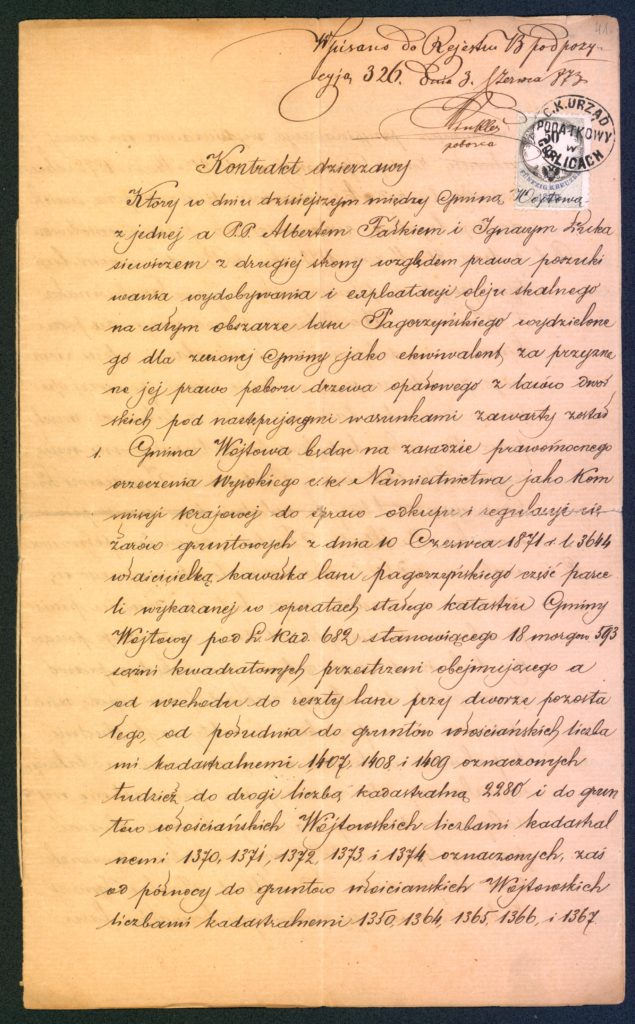 41.
Wpisano do Rejestru B pod pozy-
cyją 326. Dnia 3. Czerwca 873
Winkler
poborca
C.K. URZĄD
PODATKOWY
W
GORLICACH
50
FÜNFZIG KREUZER
Kontrakt dzierzawy
Który w dniu dzisiejszym między Gminą Wojtowa
z jednej a P.P. Albertem Faükiem i Ignacym Łuka
siewiczem z drugiej strony względem prawa poszuki
wania wydobywania i exploatacyi oleju skalnego
na całym obszarze lasu Pagorzyńskiego wydzielone
go dla rzeczonej Gminy jako ekwiwalent za przyzna
ne jej prawo poboru drzewa opałowego z lasów dwor
skich pod następującymi warunkami zawarty został
1. Gmina Wojtowa będąc na zasadzie prawomocnego
orzeczenia Wysokiego c.k. Namiestnictwa jako Kom
misyi krajowej do spraw odkupu i regulacyi cię
żarów gruntowych z dnia 10 Czerwca 1871 r. l. 3644
właścicielką kawałka lasu pagorzyńskiego część parce
li wykazanej w operatach stałego katastru Gminy
Wojtowy pod L. Kad. 682 stanowiącego 18 morgów 593
sążni kwadratowych przestrzeni obejmującego a
od wschodu do reszty lasu przy dworze pozosta
łego, od południa do gruntów włościańskich liczba
mi kadastralnemi 1407, 1408 i 1409 oznaczonych
tudzież do drogi liczbą kadastralną 2280 i do grun
tów włościańskich Wójtowskich liczbami kadastral
nemi 1370, 1371, 1372, 1373, i 1374 oznaczonych, zaś
od północy do gruntów włościanskich Wójtowskich
liczbami kadastralnemi 1350, 1364, 1365, 1366, i 1367.